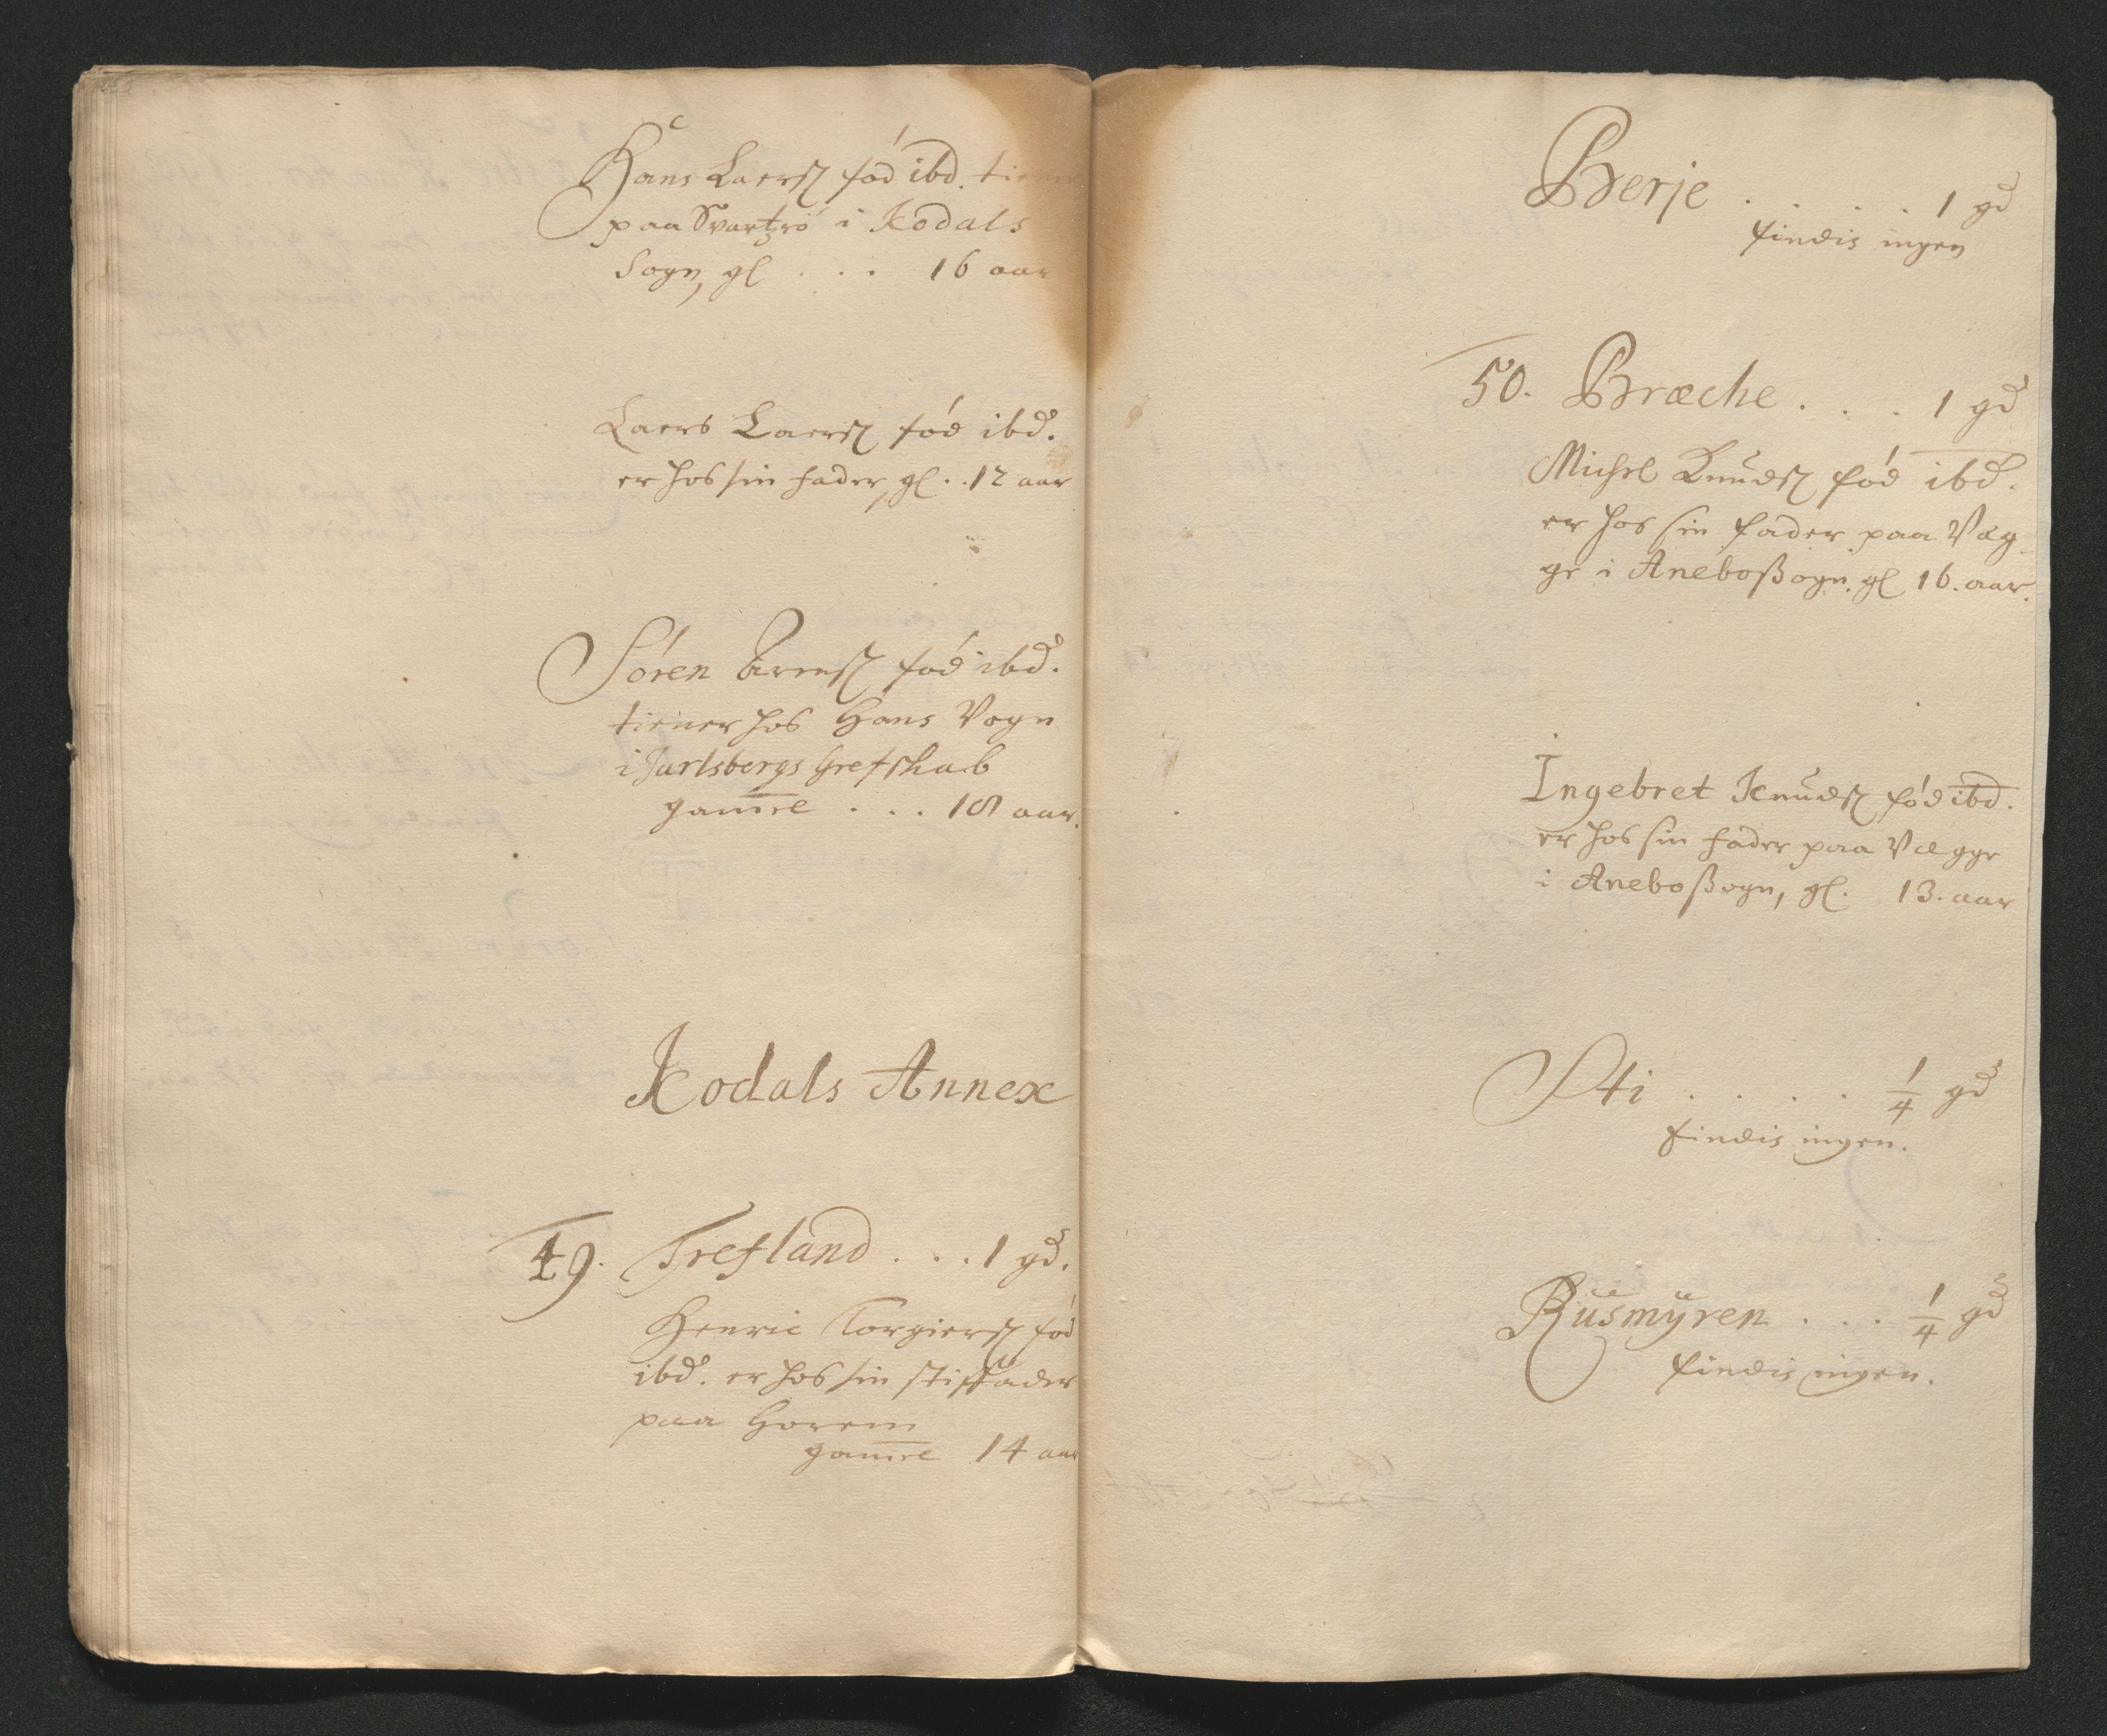 Hans Laersz fød ibd. tiener
paa Svartzrö i Kodals
Sogn, gl . . . 16 aar
Laers Laersz fød ibd.
er hos sin fader, gl. . 12 aar
Sören Arensz fød ibd.
tiener hos Hans Vogn
i Jarlsbergs Grefskab
gam̅el . . . 18 aar.
Kodals Annex
49. Trefland . . . 1 gd.
Henric Torgiersz fød
ibd. er hos sin stiffader
paa Horem
gam̅el 14 aar
Berje . . . . 1 gd
findis ingen
50. Bræche . . . 1 gd
Michel Knudsz fød ibd.
er hos sin fader paa Væg-
ge i Aneboßogn. gl 16. aar.
Ingebret Knudsz fød ibd.
er hos sin fader paa Vægge
i Aneboßogn, gl. 13. aar
Sti . . . . 1/4 gd
findis ingen.
Rusmÿren . . . 1/4 gd
findis ingen.